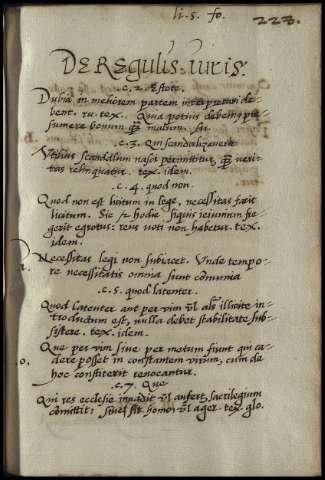 li. 5. fo. 223.
DE REGULIS. iuris.
c. 2. Estote.
Dubia in meliorem partem interpretari de-
bent. ru. tex. Quia potius debemus pre-
sumere bonum quam malum.
c. 3. Qui scandalizaverit
Utilius scandalum nasci permittitur, quam veri-
tas relinquatur. tex. idem.
c. 4. quod non.
Quod non est licitum in lege, necessitas facit
licitum. Sic et hodie siquis ieiunium fre-
gerit egrotus: reus voti non habetur. tex.
idem.
Necessitas legi non subiacet. Unde tempo-
re necessitatis omnia sunt comunia
c. 5. quod latenter.
Quod latenter aut per vim vel als illicite in-
troductum est, nulla debet stabilitate sub-
sistere. tex. idem.
Que per vim sive per metum fiunt qui ca-
dere posset in constantem virum, cum de
hoc constiterit revocantur.
c. 7. Que
Qui res ecclesie invadit vel aufert, sacrilegium
comittit: sive sit homo vel ager. tex. glo.